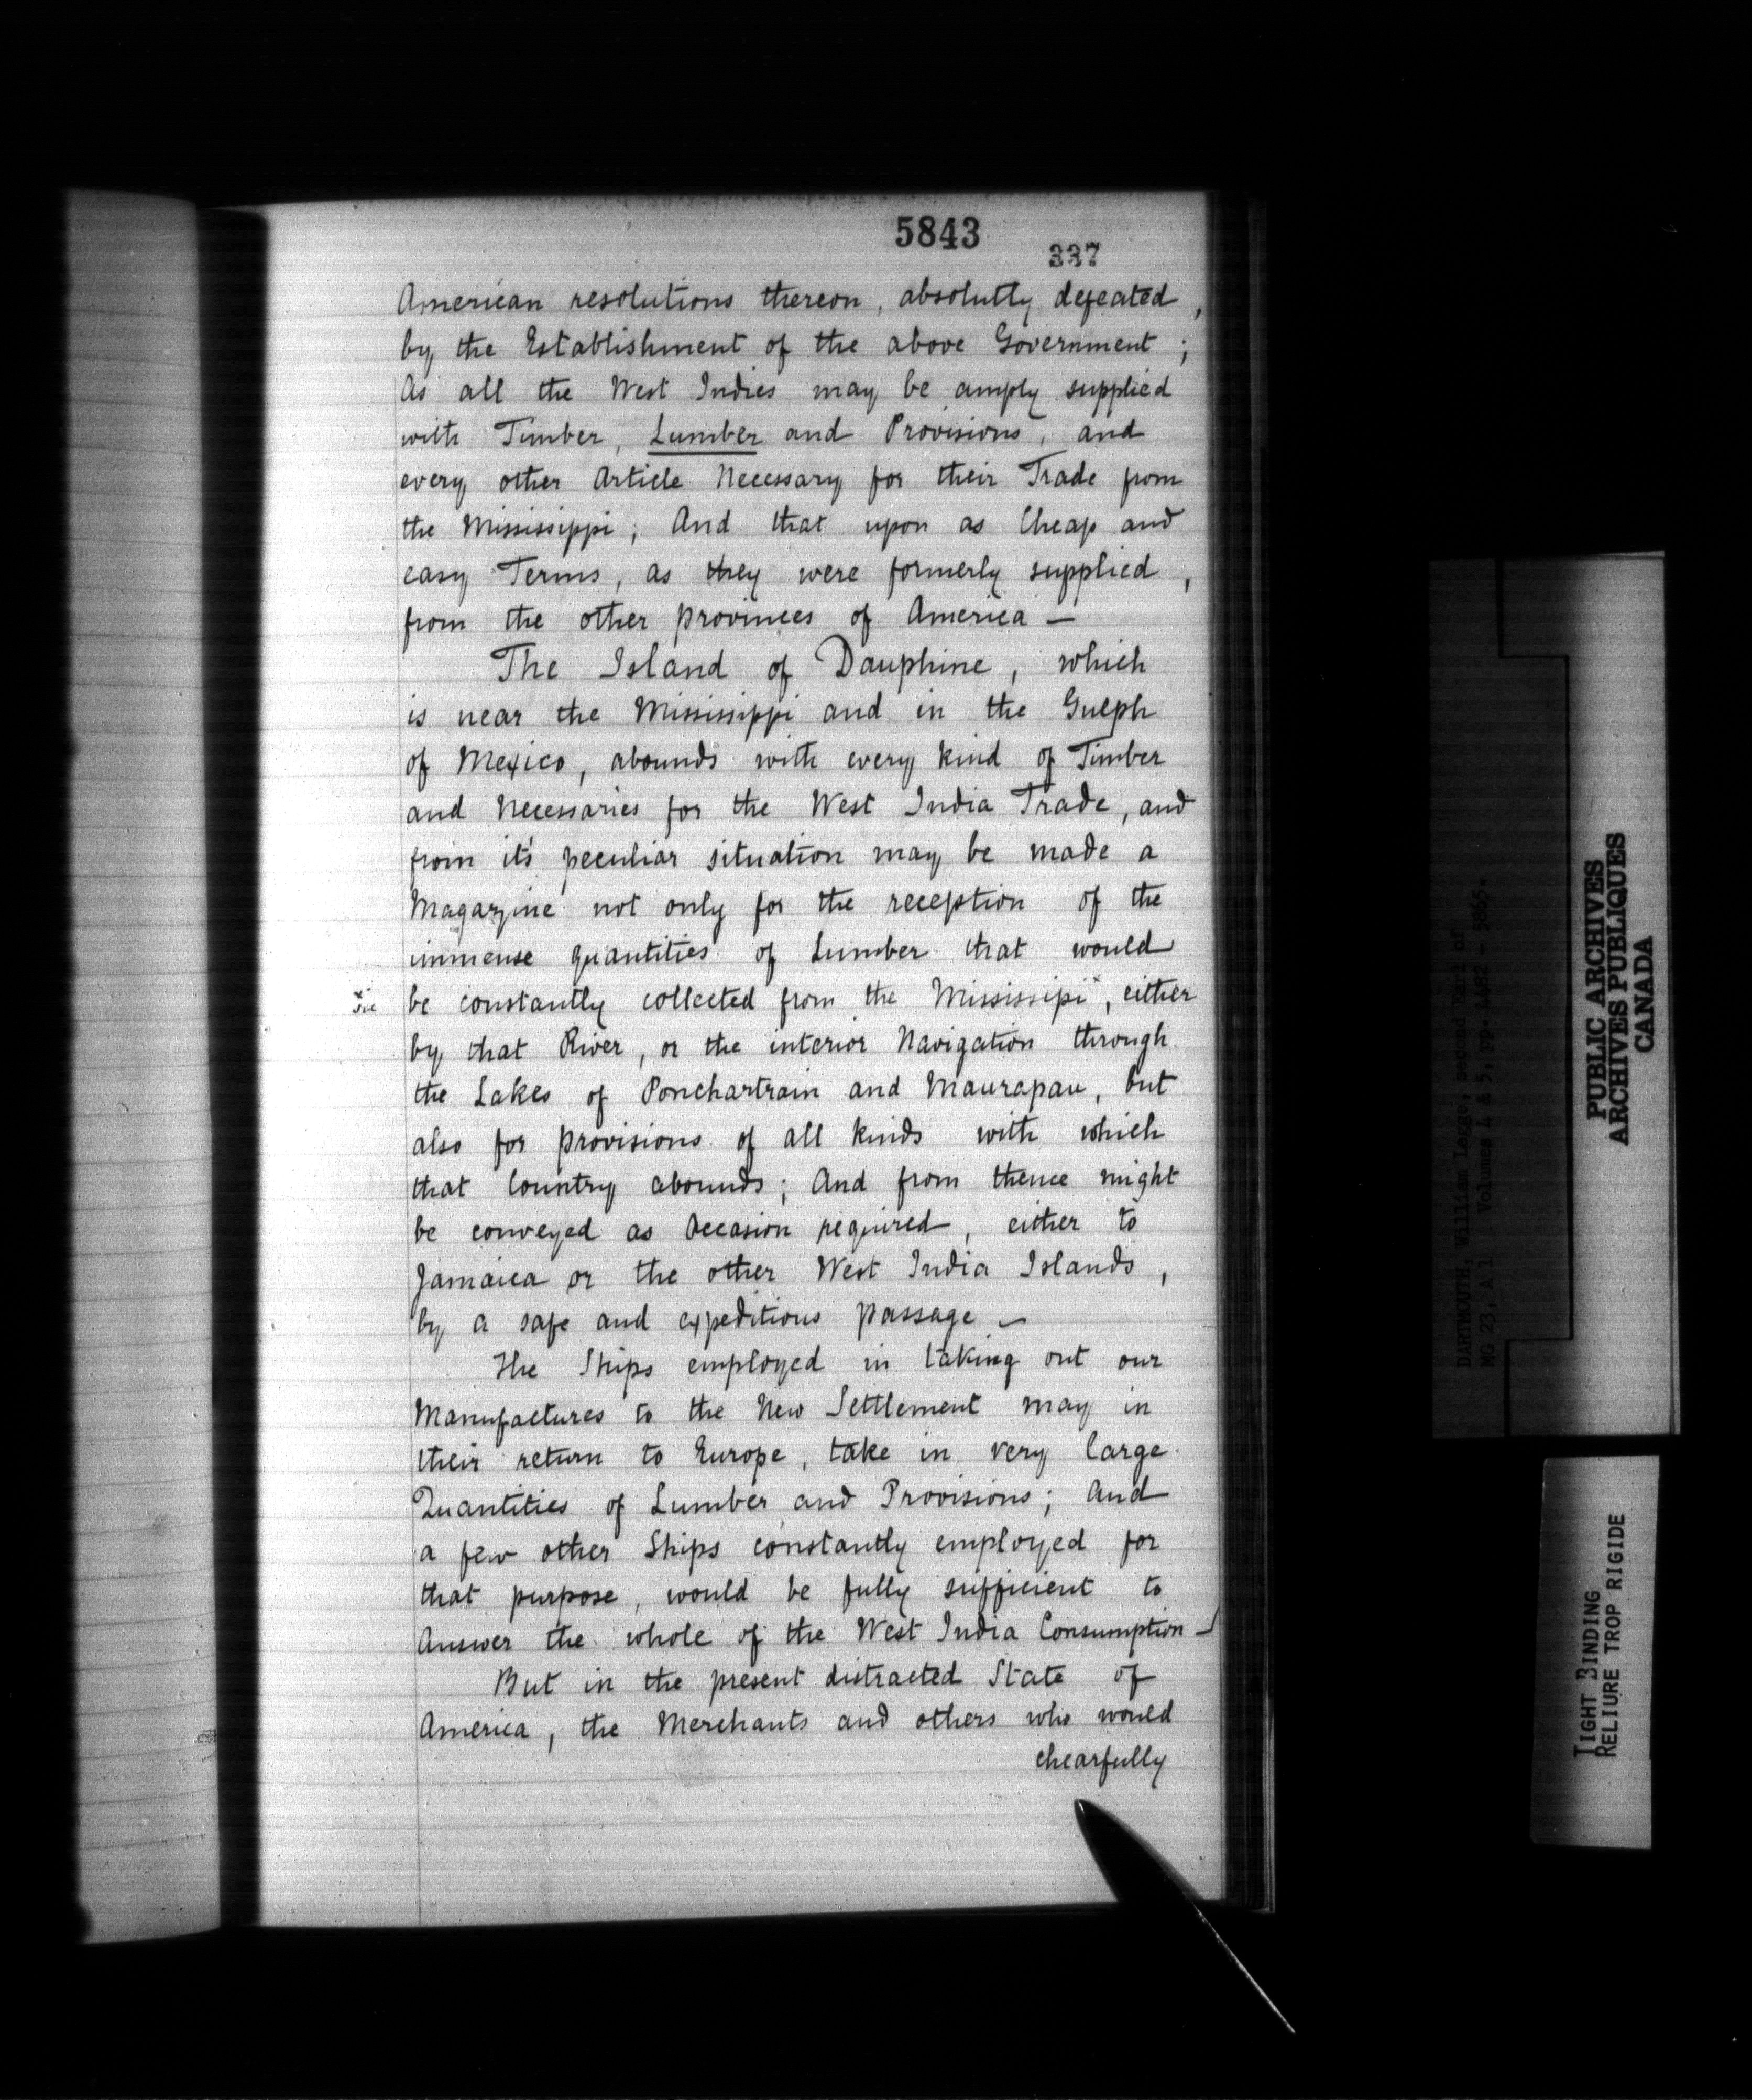 5843
337
American resolutions thereon, absolutly defeated,
by the Establishment of the above Government;
As all the West Indies may be amply supplied
with Timber, Lumber and Provisions, and
every other Article Necessary for their Trade from
the Mississippi; And that upon as Cheap and
easy Terms, as they were formerly supplied,
from the other provinces of America —
The Island of Dauphine, which
is near the Mississippi and in the Gulph
of Mexico, abounds with every kind of Timber
and Necessaries for the West India Trade, and
from it's peculiar situation may be made a
Magazine not only for the reception of the
immense quantities of Lumber that would
x sic
be constantly collected from the Mississipi x, either
by that River, or the interior Navigation through
the Lakes of Ponchartrain and Maurapau, but
also for provisions of all kinds with which
that Country abounds; And from thence might
be conveyed as Occasion required, either to
Jamaica or the other West India Islands,
by a safe and expeditious passage —
The Ships employed in taking out our
Manufactures to the New Settlement may in
their return to Europe, take in very large
Quantities of Lumber and Provisions; And
a few other Ships constantly employed for
that purpose, would be fully sufficient to
Answer the whole of the West India Consumption —
But in the present distracted State of
America, the Merchants and others who would
chearfully
DARTMOUTH, William Legge, second Earl of
MG 23, A 1 Volumes 4 & 5, pp. 4482 - 5865.
PUBLIC ARCHIVES
ARCHIVES PUBLIQUES
CANADA
TIGHT BINDING
RELIURE TROP RIGIDE